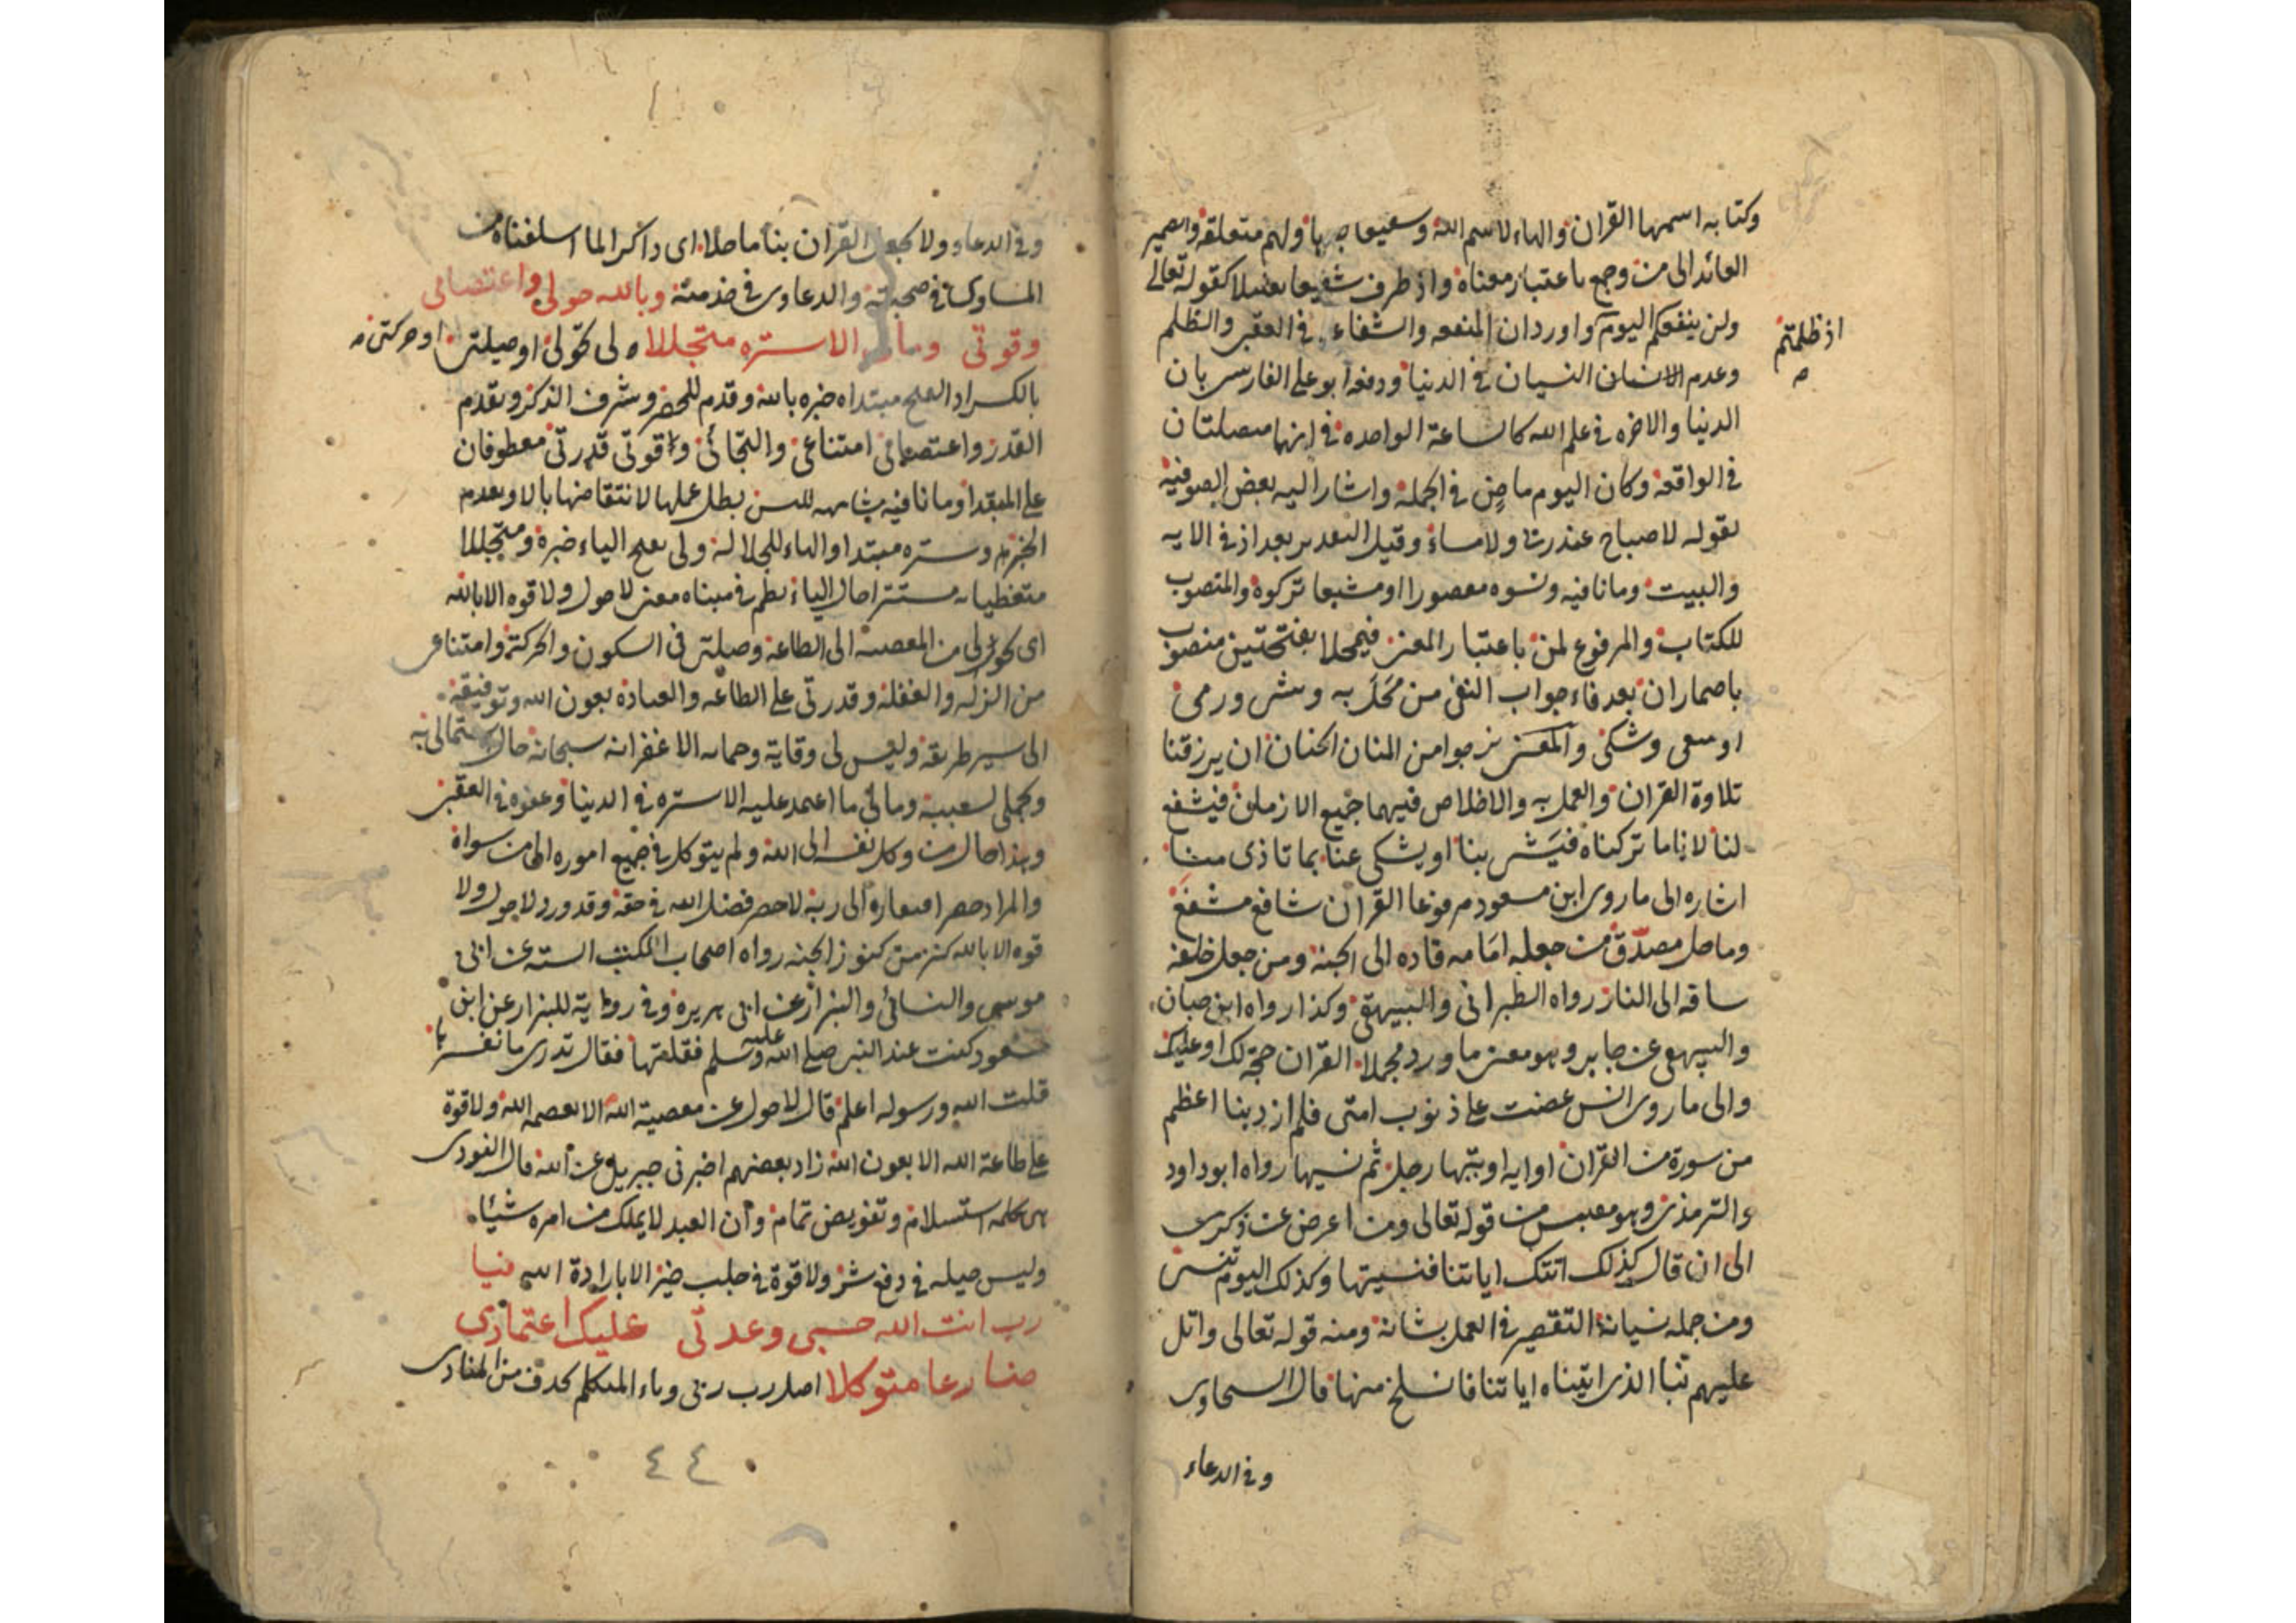 وكتابه اسمها القران والهاء لاسم الله وشفيعا خبرها ولهم متعلقه والضمير
العائد الى من وجمع باعتبار معناه واذ ظرف شفيعا تعليلا كقوله تعالى
ولن ينفعكم اليوم واورد ان المنفعه والشفاء في العقبى والظلم
اذ ظلمتم
وعدم الاتيان النسيان في الدنيا ودفعه ابو على الفارسى بان
الدنيا والاخره في علم الله كالساعة الواحده في انها متصلتان
في الواقعة وكان اليوم ماض في الجملة واشار اليه بعض الصوفية
بقوله لا صباح عند ربنا ولا مساء وقيل التقدير بعد اذ في الايه
والبيت وما نافيه ونسوه مقصورا او مشبعا تركوه والمنصوب
للكتاب والمرفوع لمن باعتبار المعنى فيمحلا بفتحتين منصوب
باضمار ان بعد فاء جواب النفى من محل به وشى ورمى
او سعى وشكى والمعنى نرجوا من المنان الحنان ان يرزقنا
تلاوة القران والعمل به والاخلاص فيهما جميع الازمان فيشفع
لنا لانا ما تركناه فيشى بنا او يشكى عنا بما تاذى منا
اشاره الى ما روى ابن مسعود مرفوعا القران شافع مشفع
وماحل مصدق من جعله امامه قاده الى الجنة ومن جعل خلفه
ساقه الى النار رواه الطبرانى والبيهقى وكذا رواه ابن حبان
والبيهقى عن جابر وهو معنى ما ورد مجملا القران حجة لك او عليك
والى ما روى انس عرضت على ذنوب امتى فلم ار ذنبا اعظم
من سورة من القران او ايه اوتيها رجل ثم نسيها رواه ابو داود
والترمذى وهو مقتبس من قوله تعالى ومن اعرض عن ذكرى
الى ان قال كذلك اتتك اياتنا فنسيتها وكذلك اليوم تنسى
ومن جمله نسيانه التقصير في العمل بشانه ومنه قوله تعالى واتل
عليهم نبا الذى اتيناه اياتنا فانسلخ منها قال السخاوى
وفي الدعاء
وفي الدعاء ولا تجعل القران بنا ماحلا اى ذاكرا لما اسلفناه من
المساوى في صحبته والدعاوى في خدمته وبالله حولى واعتصامى
وقوتى ومالى الا ستره متجللا حولى تحولى او حيلتى او حركتى
بالكسر او الفتح مبتداه خبره بالله وقدم للحصر وشرف الذكر وتقدم
القدر واعتصامى امتناعى والتجائى وقوتى قدرتى معطوفان
على المبتدا وما نافيه مشابهه لليس بطل عملها لانتقاضها بالا وتقدم
الخبر وستره مبتدا والهاء للجلاله ولى بفتح الياء خبره ومتجللا
متغطيا به مستترا حال الياء نظم في مبناه معنى لا حول ولا قوه الا بالله
اى تحولى من المعصيه الى الطاعة وحيلتى في السكون والحركة وامتناعى
من الزله والغفلة وقدرتى على الطاعه والعبادة بعون الله وتوفيقه
الى سير طريقه وليس لى وقاية وحمايه الا غفرانه سبحانه حال اشتمالى به
وتجملى بسببه ومالى ما اعتمد عليه الا ستره في الدنيا وعفوه في العقبى
وهذا حال من وكل نفسه الى الله ولم يتوكل في جميع اموره الى من سواه
والمراد حصر افتقاره الى ربه لا حصر فضل الله في حقه وقد ورد لا حول ولا
قوه الا بالله كنز من كنوز الجنه رواه اصحاب الكتب الستة عن ابى
موسى والنسائى والبزار عن ابى هريره وفي رواية للبزار عن ابن
مسعود كنت عند النبى صلى الله عليه وسلم فقلتها فقال تدرى ما تفسيرها
قلت الله ورسوله اعلم قال لا حول عن معصية الله الا بعصمه الله ولا قوة
على طاعة الله الا بعون الله زاد بعضهم اخبرنى جبريل عن الله قال النووى
هى كلمه استسلام وتفويض تمام وان العبد لا يملك من امره شيئا
وليس حيله في دفع شر ولا قوة في جلب خير الا بارادة الله فيا
رب انت الله حسبى وعدتى عليك اعتمادى
ضارعا متوكلا اصل رب ربى وياء المتكلم تحذف من المنادى
٤٤